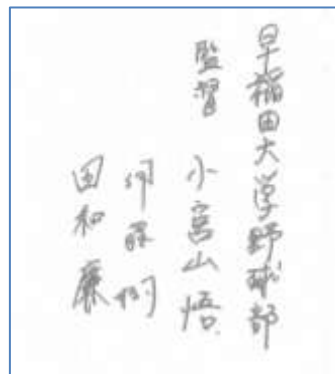 早稲田大学野球部
監督 小宮山悟
伊藤樹
田和廉